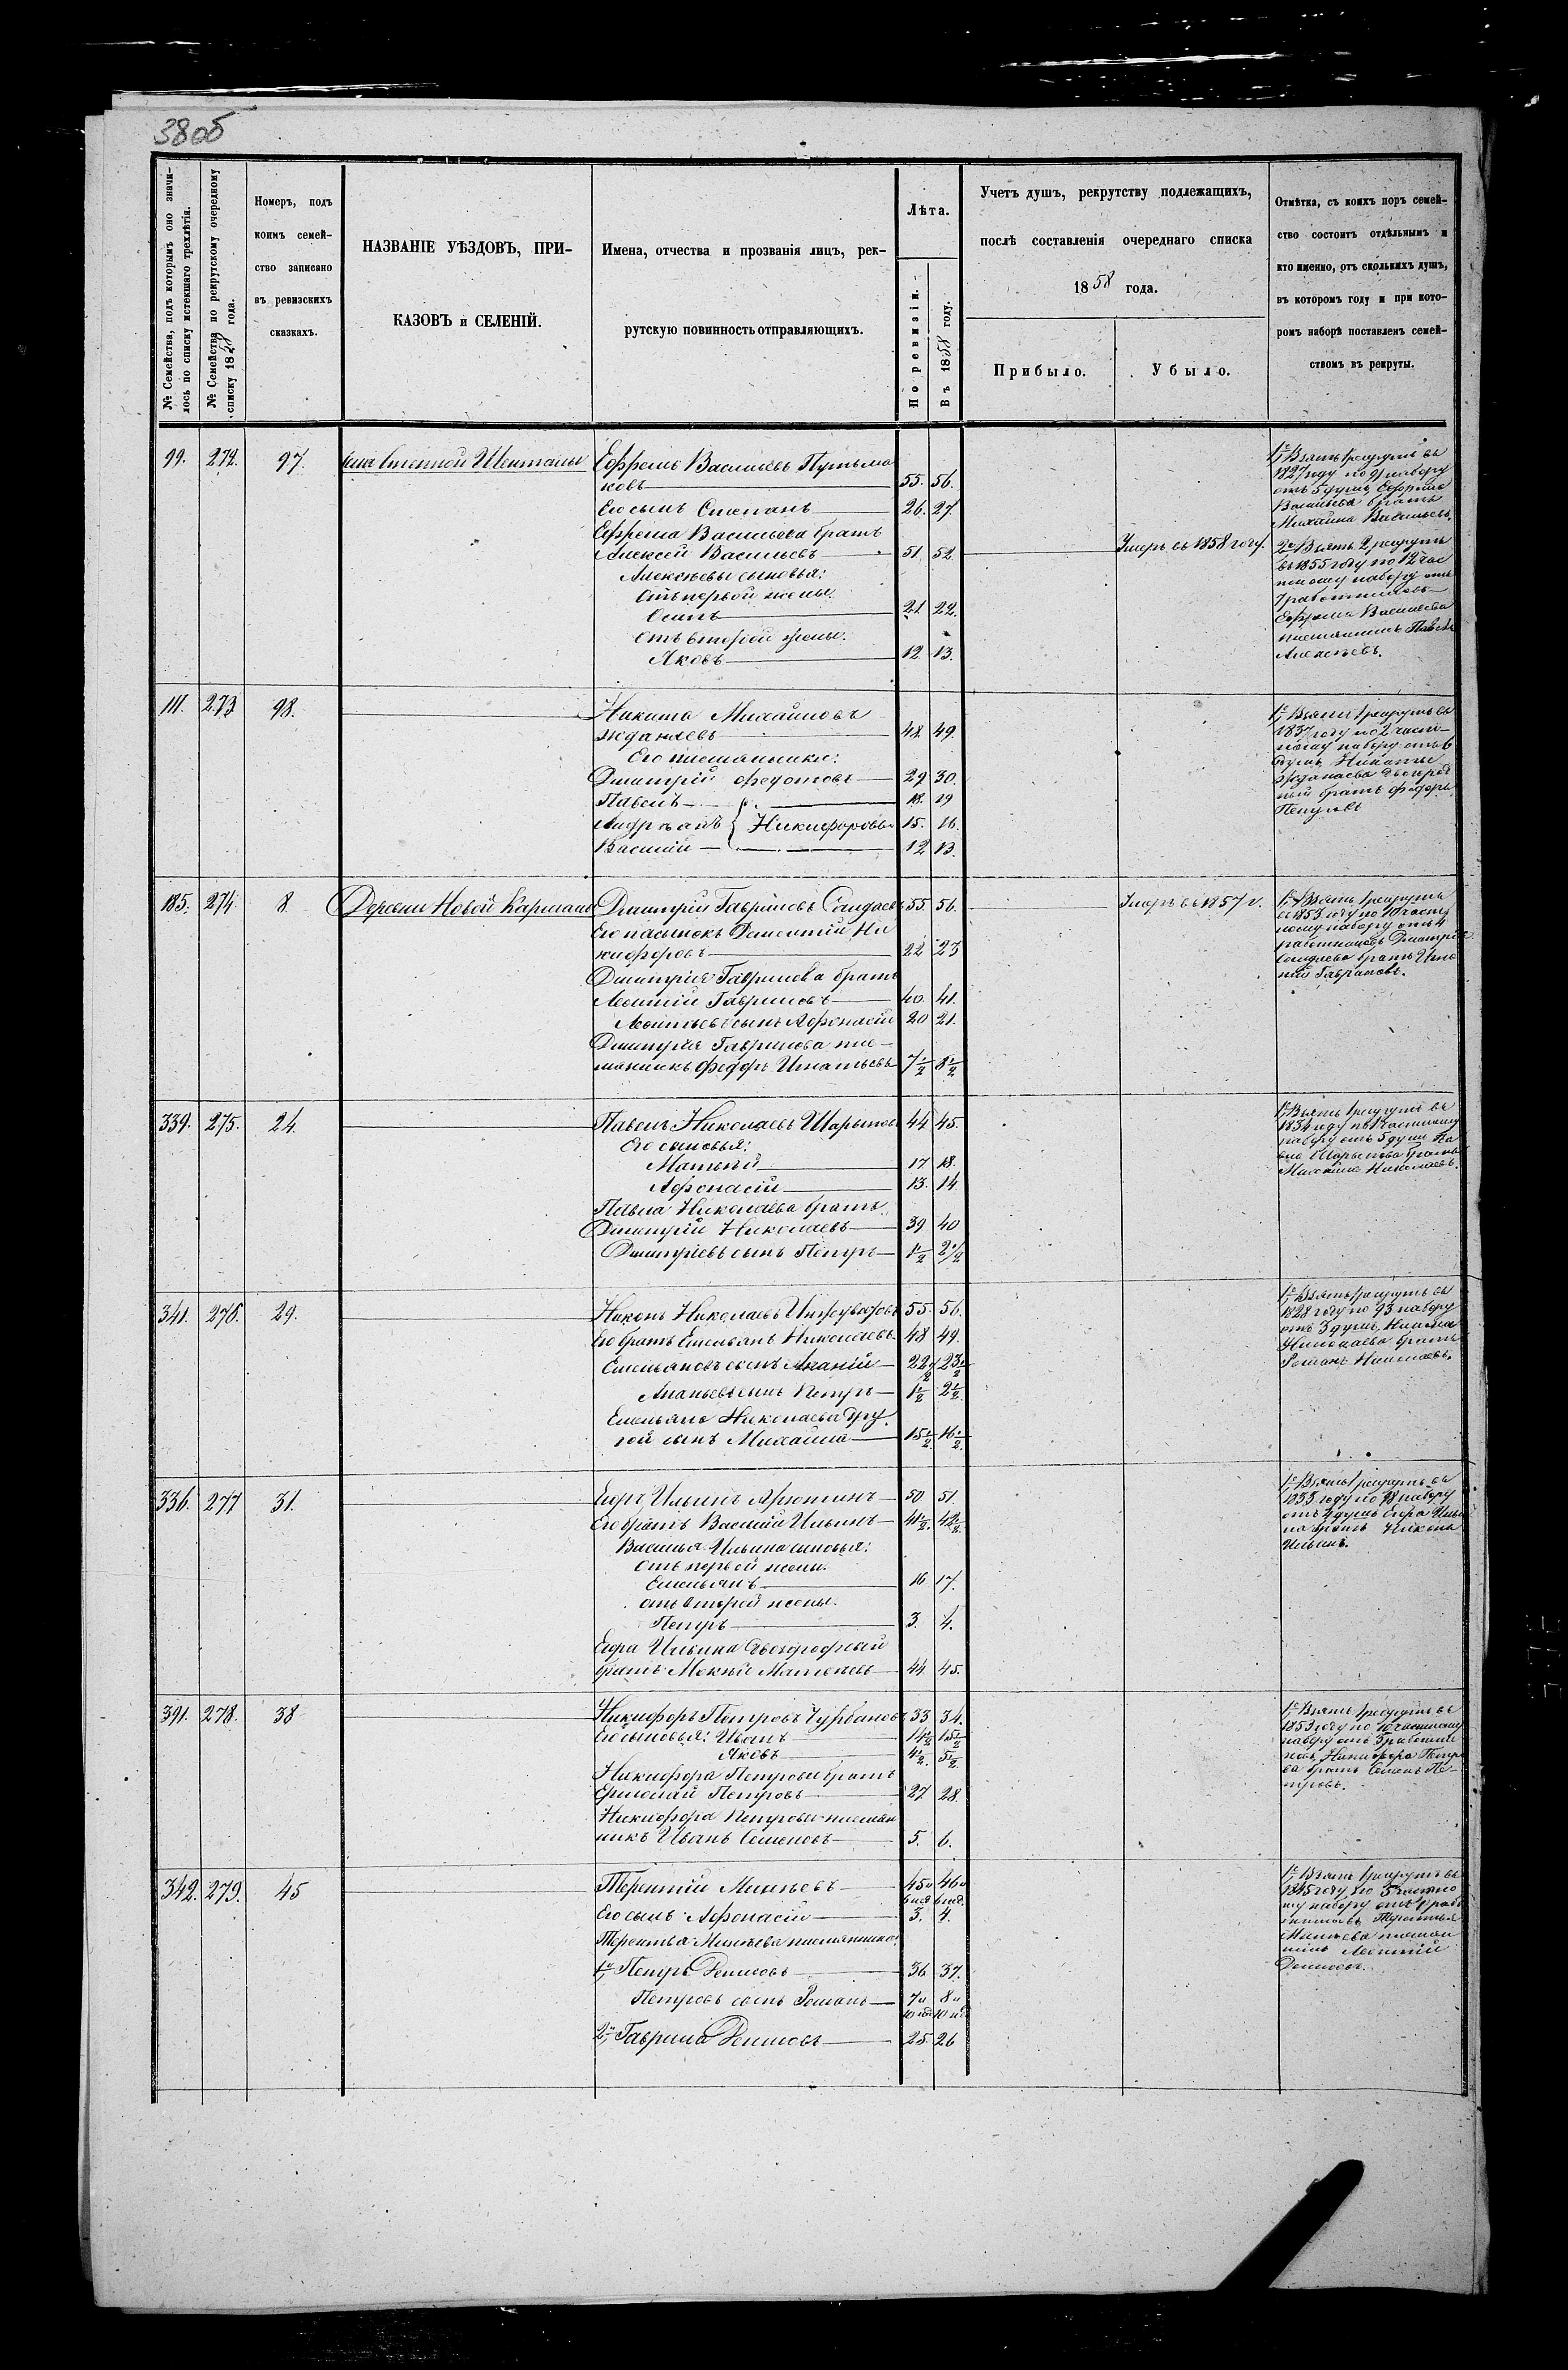 38об
№ Семейства, подъ которымъ оно значи-
лось по списку истекшаго трехлѣтія.
№ Семейства по рекрутскому очередному
списку 1858 года.
Номеръ, подъ
коимъ семей-
ство записано
въ ревизскихъ
сказкахъ.
НАЗВАНІЕ УѢЗДОВЪ, ПРИ-
КАЗОВЪ и СЕЛЕНІЙ.
Имена, отчества и прозванія лицъ, рек-
рутскую повинность отправляющихъ.
Лѣта.
По ревизіи.
Въ 1858 году.
Учетъ душъ, рекрутству подлежащихъ,
послѣ составленія очереднаго списка
1858 года.
Прибыло.
Убыло.
Отмѣтка, съ коихъ поръ семей-
ство состоитъ отдѣльнымъ и
кто именно, отъ сколькихъ душъ,
въ которомъ году и при кото-
ромъ наборѣ поставленъ семей-
ствомъ въ рекруты.
99. 272. 97. Села Степной Шенталы Ефремъ Васильевъ Путьма
ковъ 55. 56.
Его сынъ Степанъ 26. 27.
Ефрема Васильева братъ
Алексей Васильевъ 51 52. Умеръ въ 1858 году.
Алексѣевы сыновья:
Отъ первой жены:
Осипъ 21 22.
Отъ второй жены:
Яковъ 12 13.
1е Взятъ 1 рекрутъ въ
1827 году по набору
отъ 5 душъ Ефрема
Васильева братъ
Михайла Васильевъ.
2е Взятъ 2 рекрутъ
въ 1855 году по 12 час
тному набору отъ
работниковъ
Ефрема Васильева
племянникъ Павелъ
Алексѣевъ.
111. 273 98. Никита Михайловъ
Жданаевъ 48. 49.
Его племянники:
Дмитрій Федотовъ 29 30.
Павелъ 18. 19
Андреанъ Никифоровы 15. 16.
Василій 12 13.
1е Взятъ 1 рекрутъ въ
1837 году по 2 част-
ному набору отъ 6
душъ Никиты
Жданаева двоюрод
ный братъ Федоръ
Петровъ
185. 274. 8 Деревни Новой Кармалы Дмитрій Гавриловъ Сандаевъ 55. 56. Умеръ въ 1857 г.
Его пасынокъ Дементій Ни
кифоровъ 22 23
Дмитрія Гаврилова братъ
Леонтій Гавриловъ 40. 41.
Леонтьевъ сынъ Афонасій 20 21.
Дмитрія Гаврилова пле-
мянникъ Федоръ Игнатьевъ 7½ 8½
1е Взятъ 1 рекрутъ
въ 1853 году по 10 част
ному набору отъ 4
работниковъ Дмитрія
Сандаева братъ Игна
тій Гавриловъ.
339. 275. 24. Павелъ Николаевъ Шарыповъ 44 45.
Его сыновья:
Матвѣй 17 18.
Афонасій 13. 14
Павла Николаева братъ
Дмитрій Николаевъ 39 40
Дмитріевъ сынъ Петръ 1½ 2½
1е Взятъ 1 рекрутъ въ
1834 году по 1 частному
набору отъ 5 душъ Па
вла Шарыпова братъ
Михайла Николаевъ.
341. 276. 29. Никонъ Николаевъ 55. 56.
Его братъ Емельянъ Николаевъ 48 49.
Емельяновъ сынъ Ананій 22½ 23½
Ананьевъ сынъ Петръ 1½ 2½
Емельяна Николаева дру
гой сынъ Михайла 15½ 16½
1е Взятъ 1 рекрутъ въ
1828 году по 93 набору
отъ 3 душъ Никона
Николаева братъ
Романъ Николаевъ.
336. 277 31. Егоръ Ильинъ Арютинъ 50 51.
Его братъ Василій Ильинъ 41½ 42½
Василья Ильина сыновья:
Отъ первой жены:
Емельянъ 16 17.
отъ второй жены:
Петръ 3. 4.
Егора Ильина двоюродный
братъ Мокѣй Матвѣевъ 44 45.
1е Взятъ 1 рекрутъ въ
1833 году по 98 набору
отъ 4 душъ Егора Ильи
на братъ Никонъ
Ильинъ.
391. 278. 38 Никифоръ Петровъ Чурбановъ 33 34.
Его сыновья: Иванъ 14½ 15½
Яковъ 4½ 5½
Никифора Петрова братъ
Ермолай Петровъ 27 28.
Никифора Петрова племян
никъ Иванъ Семеновъ 5. 6.
1е Взятъ 1 рекрутъ въ
1853 году по 10 частному
набору отъ 3 работни
ковъ Никифора Петро
ва братъ Семенъ Пе-
тровъ.
342. 279. 45 Терентій Минѣевъ 45 и 46 и
6 нед. 6 нед.
Его сынъ Афонасій 3. 4.
Терентья Минѣева племянники:
1й Петръ Денисовъ 36 37.
Петровъ сынъ Романъ 7 и 8 и
10 нед 10 нед
2й Гаврила Денисовъ 25. 26
1е Взятъ 1 рекрутъ въ
1845 году по 5 частно
му набору отъ рабо
тниковъ Терентья
Минѣева племян
никъ Леонтій
Денисовъ.